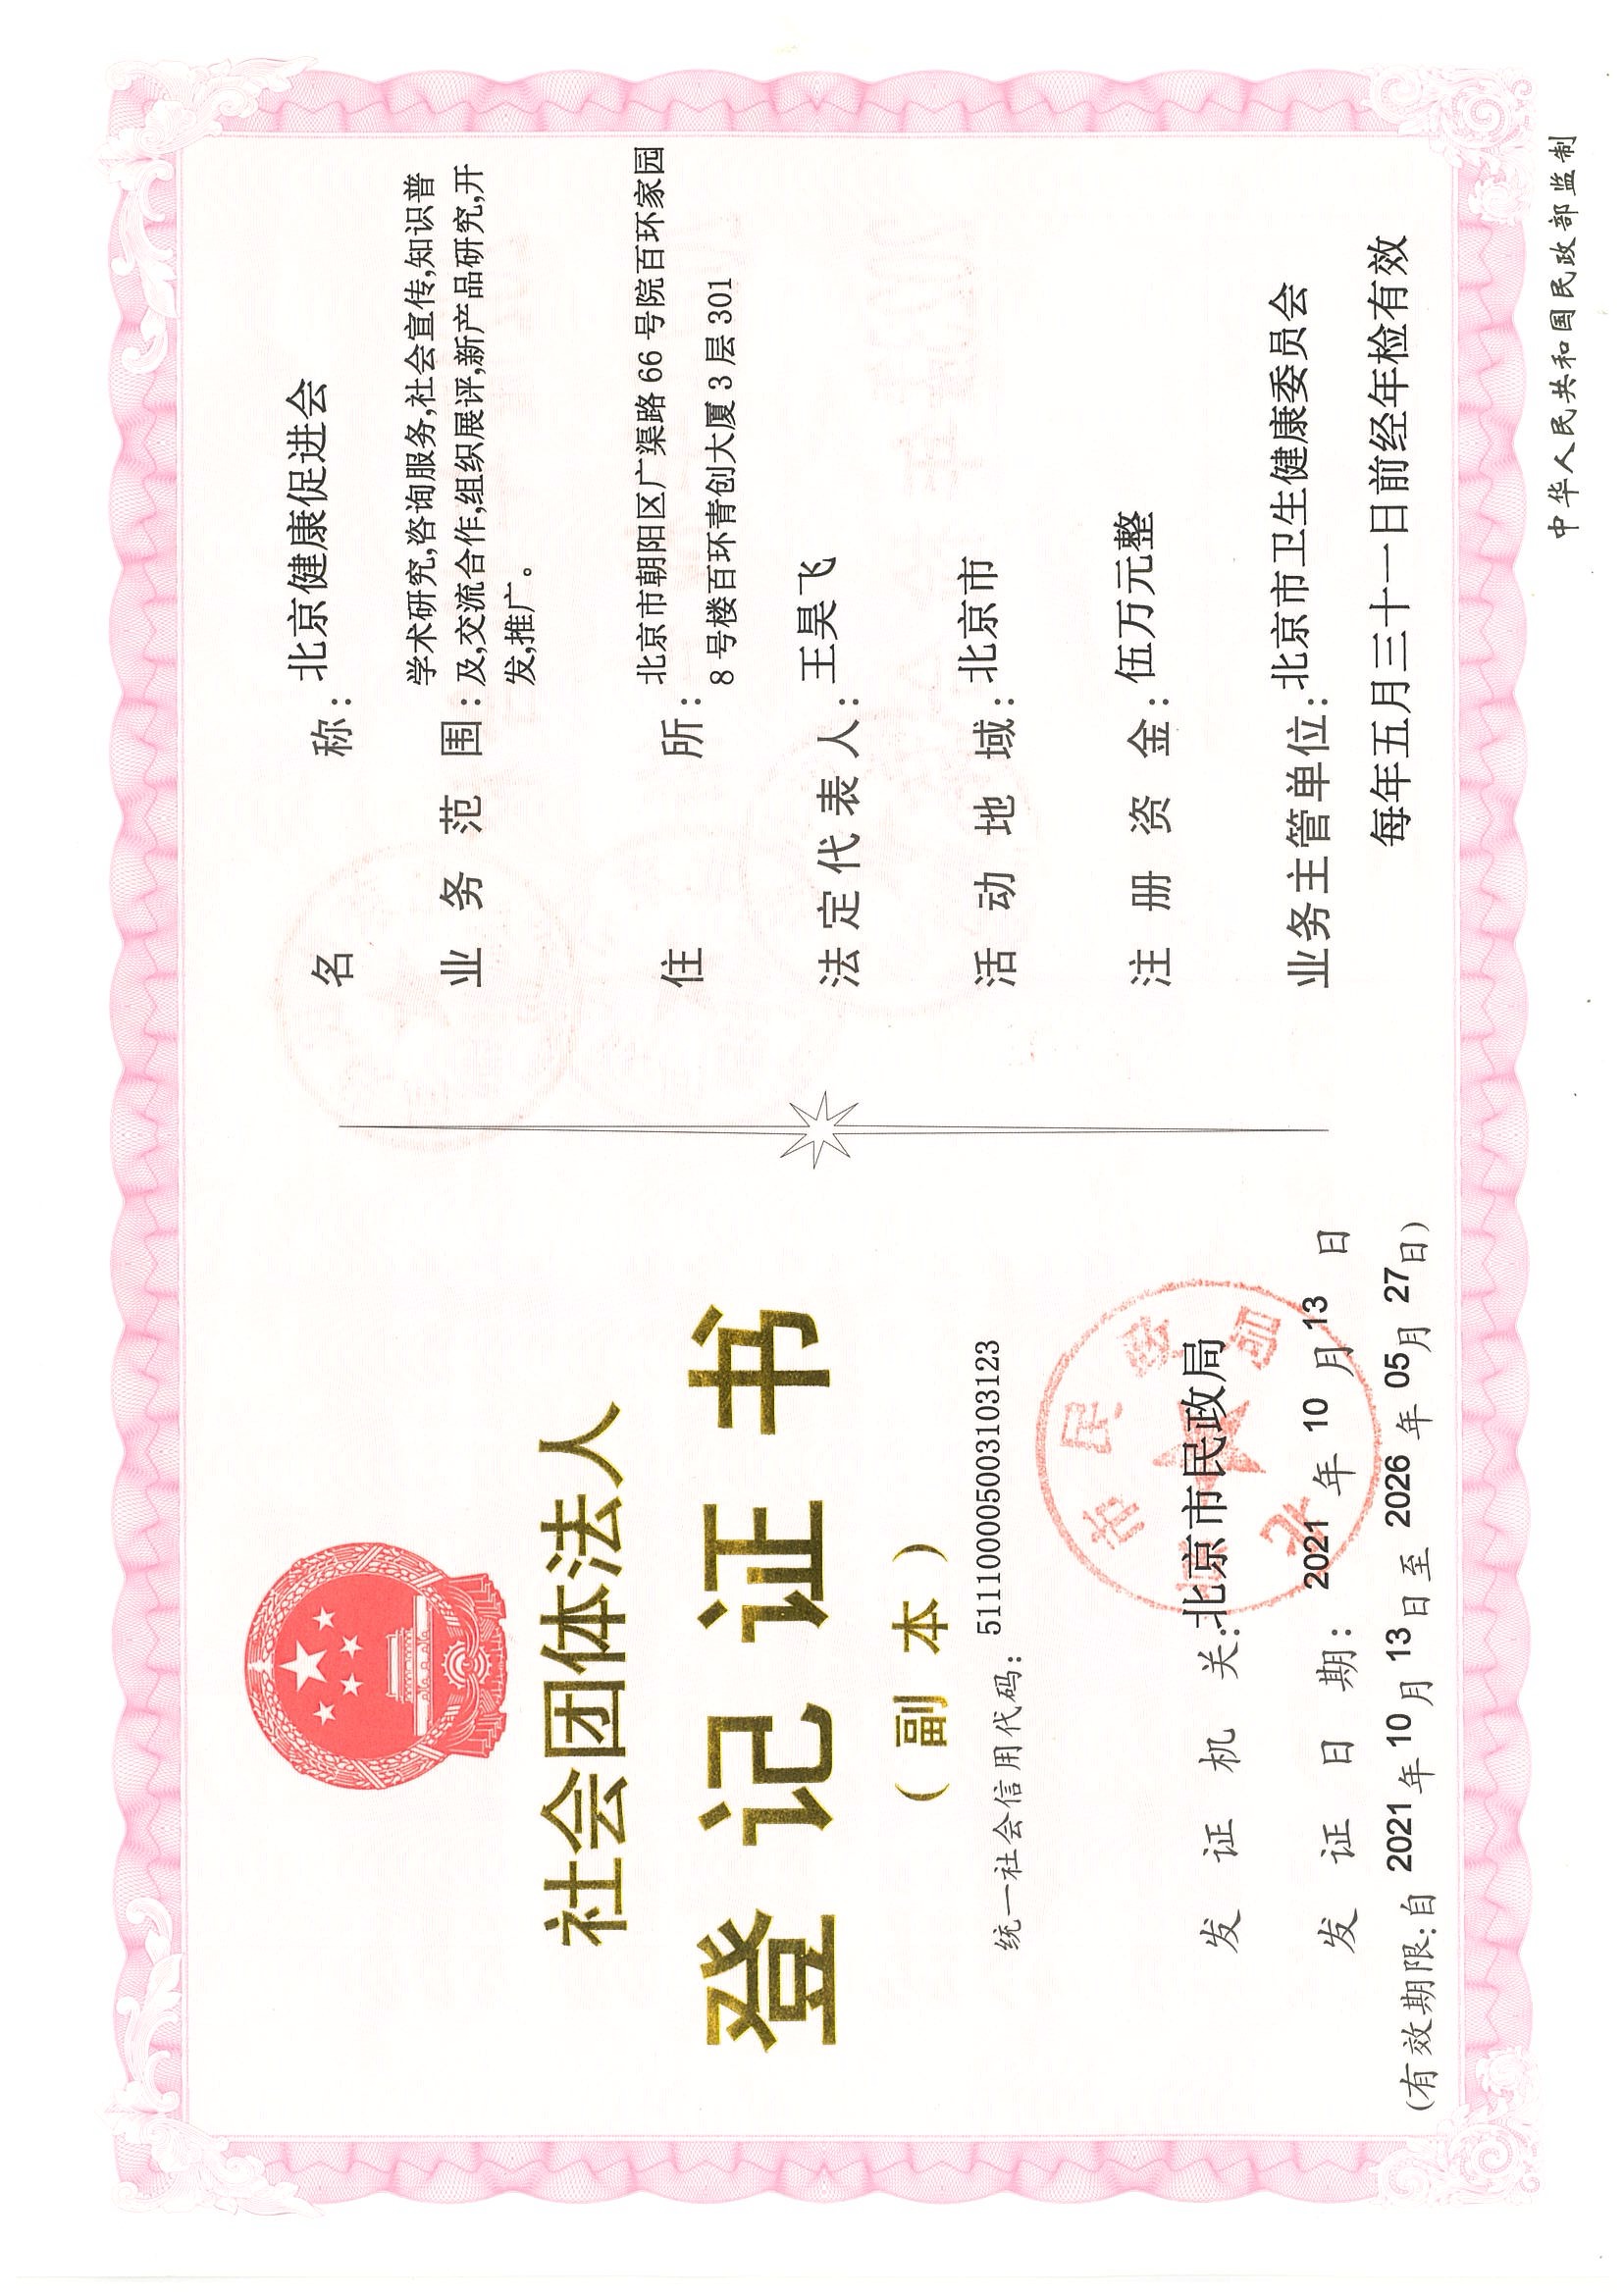 社会团体法人
登记证书
（副本）
统一社会信用代码： 51110000500310312​3
发证机关:北京市民政局
发证日期: 2021年10月13日
(有效期限:自2021年10月13日至2026年05月27日)
北京市民政局
名称: 北京健康促进会
业务范围: 学术研究,咨询服务,社会宣传,知识普
及,交流合作,组织展评,新产品研究,开
发,推广。
住所: 北京市朝阳区广渠路66号院百环家园
8号楼百环青创大厦3层301
法定代表人: 王昊飞
活动地域: 北京市
注册资金: 伍万元整
业务主管单位: 北京市卫生健康委员会
每年五月三十一日前经年检有效
中华人民共和国民政部监制